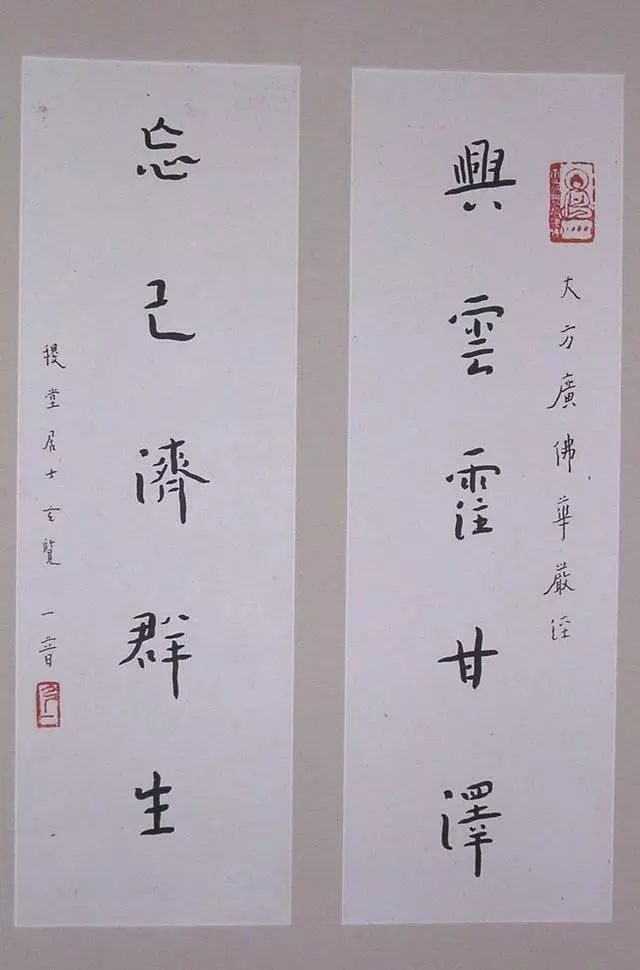 大方廣佛華嚴經
興雲霔甘澤
忘己濟群生
堂居士玄覽 一音